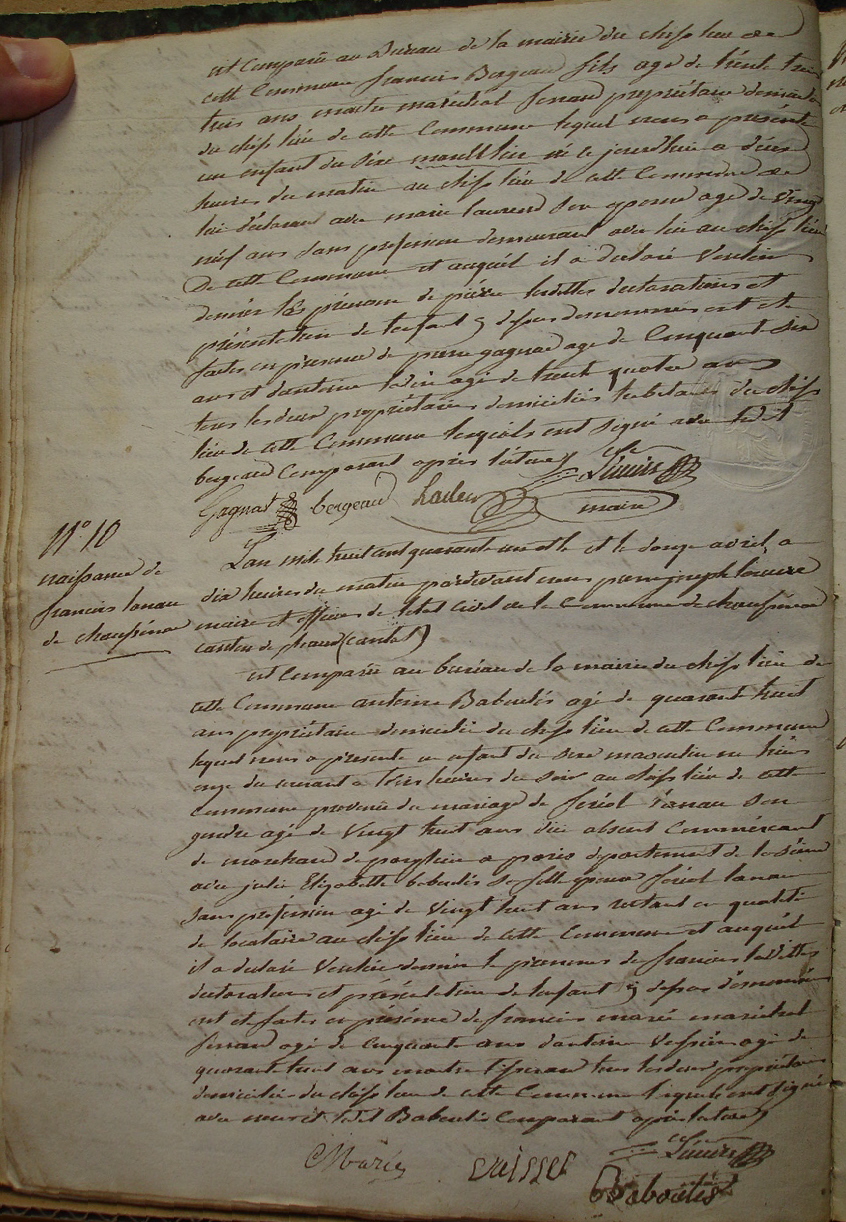 est Comparu au Bureau de la mairie du chef lieu de
cette Commune francois Bergeau fils agé de trente trois
trois ans maitre maréchal ferrand propriétaire demeurant
du chef lieu de cette Commune lequel nous a présenté
un enfant du sexe masculin né ce jourdhui a deux
heures du matin au chef lieu de cette Commune de
lui déclarant avec marie laurens son epouse agé de vingt
neuf ans sans profession demeurant avec lui au chef lieu
De cette Commune et auquel il a declaré vouloir
donner les prénoms de pierre lesdittes declarations et
présentation de lenfant y dessus denommés ont été
faites en presence de pierre gagnac agé de Cinquante six
ans et dantoine agé de trente quatre ans
tous les deux propriétaires domiciliés habitants du chef
lieu de cette Commune lesquels ont signé avec ledit
bergeaud Comparant après lecture
Gagnac bergeaud
maire
N° 10
naissance de
francois lanau
de
L'an mil huit cent quarante et le douze avril a
dix heures du matin pardevant nous pierre joseph
maire et officier de letat civil de la Commune de
canton de pleaux (cantal)
est Comparu au bureau de la mairie du chef lieu de
cette Commune antoine Baboulés agé de quarante huit
ans propriétaire domicilié du chef lieu de cette Commune
lequel nous a presenté un enfant du sexe masculin né hier
onze du courant a trois heures du soir au chef lieu de cette
Commune provenu du mariage de feriol lanau son
gendre agé de vingt huit ans absent Commercant
de marchand de a paris departement de la Seine
avec julie Elizabette baboulés sa fille epouse feriol lanau
sans profession agé de vingt huit ans restant en qualité
de locataire au chef lieu de cette Commune et auquel
il a declaré vouloir donner le prenom de francois lesdittes
declarations et présentation de lenfant y dessus dénommés
ont été faites en présence de francois marié maréchal
ferrand agé de Cinquante ans dantoine Vessier agé de
quarante huit ans maitre tisserand tous les deux propriétaires
domiciliés du chef lieu de cette Commune lesquels ont signé
avec nous et ledit Baboulés Comparant après lecture
Marié
Baboulés